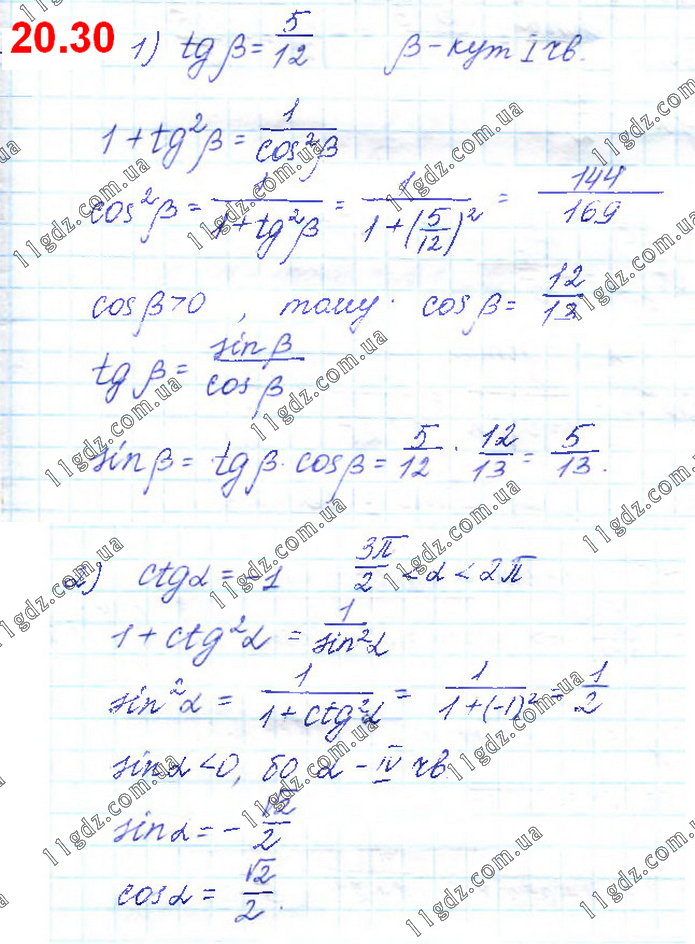 20.30 1) tg β = 5/12 β - кут I чв.
1 + tg²β = 1/cos²β
cos²β = 1/(1 + tg²β) = 1/(1 + (5/12)²) = 144/169
cos β > 0, тому cos β = 12/13
tg β = sin β/cos β
sin β = tg β · cos β = 5/12 · 12/13 = 5/13.
2) ctg α = -1 3π/2 < α < 2π
1 + ctg²α = 1/sin²α
sin²α = 1/(1 + ctg²α) = 1/(1 + (-1)²) = 1/2
sin α < 0, бо α - IV чв
sin α = - √2/2
cos α = √2/2.
11gdz.com.ua